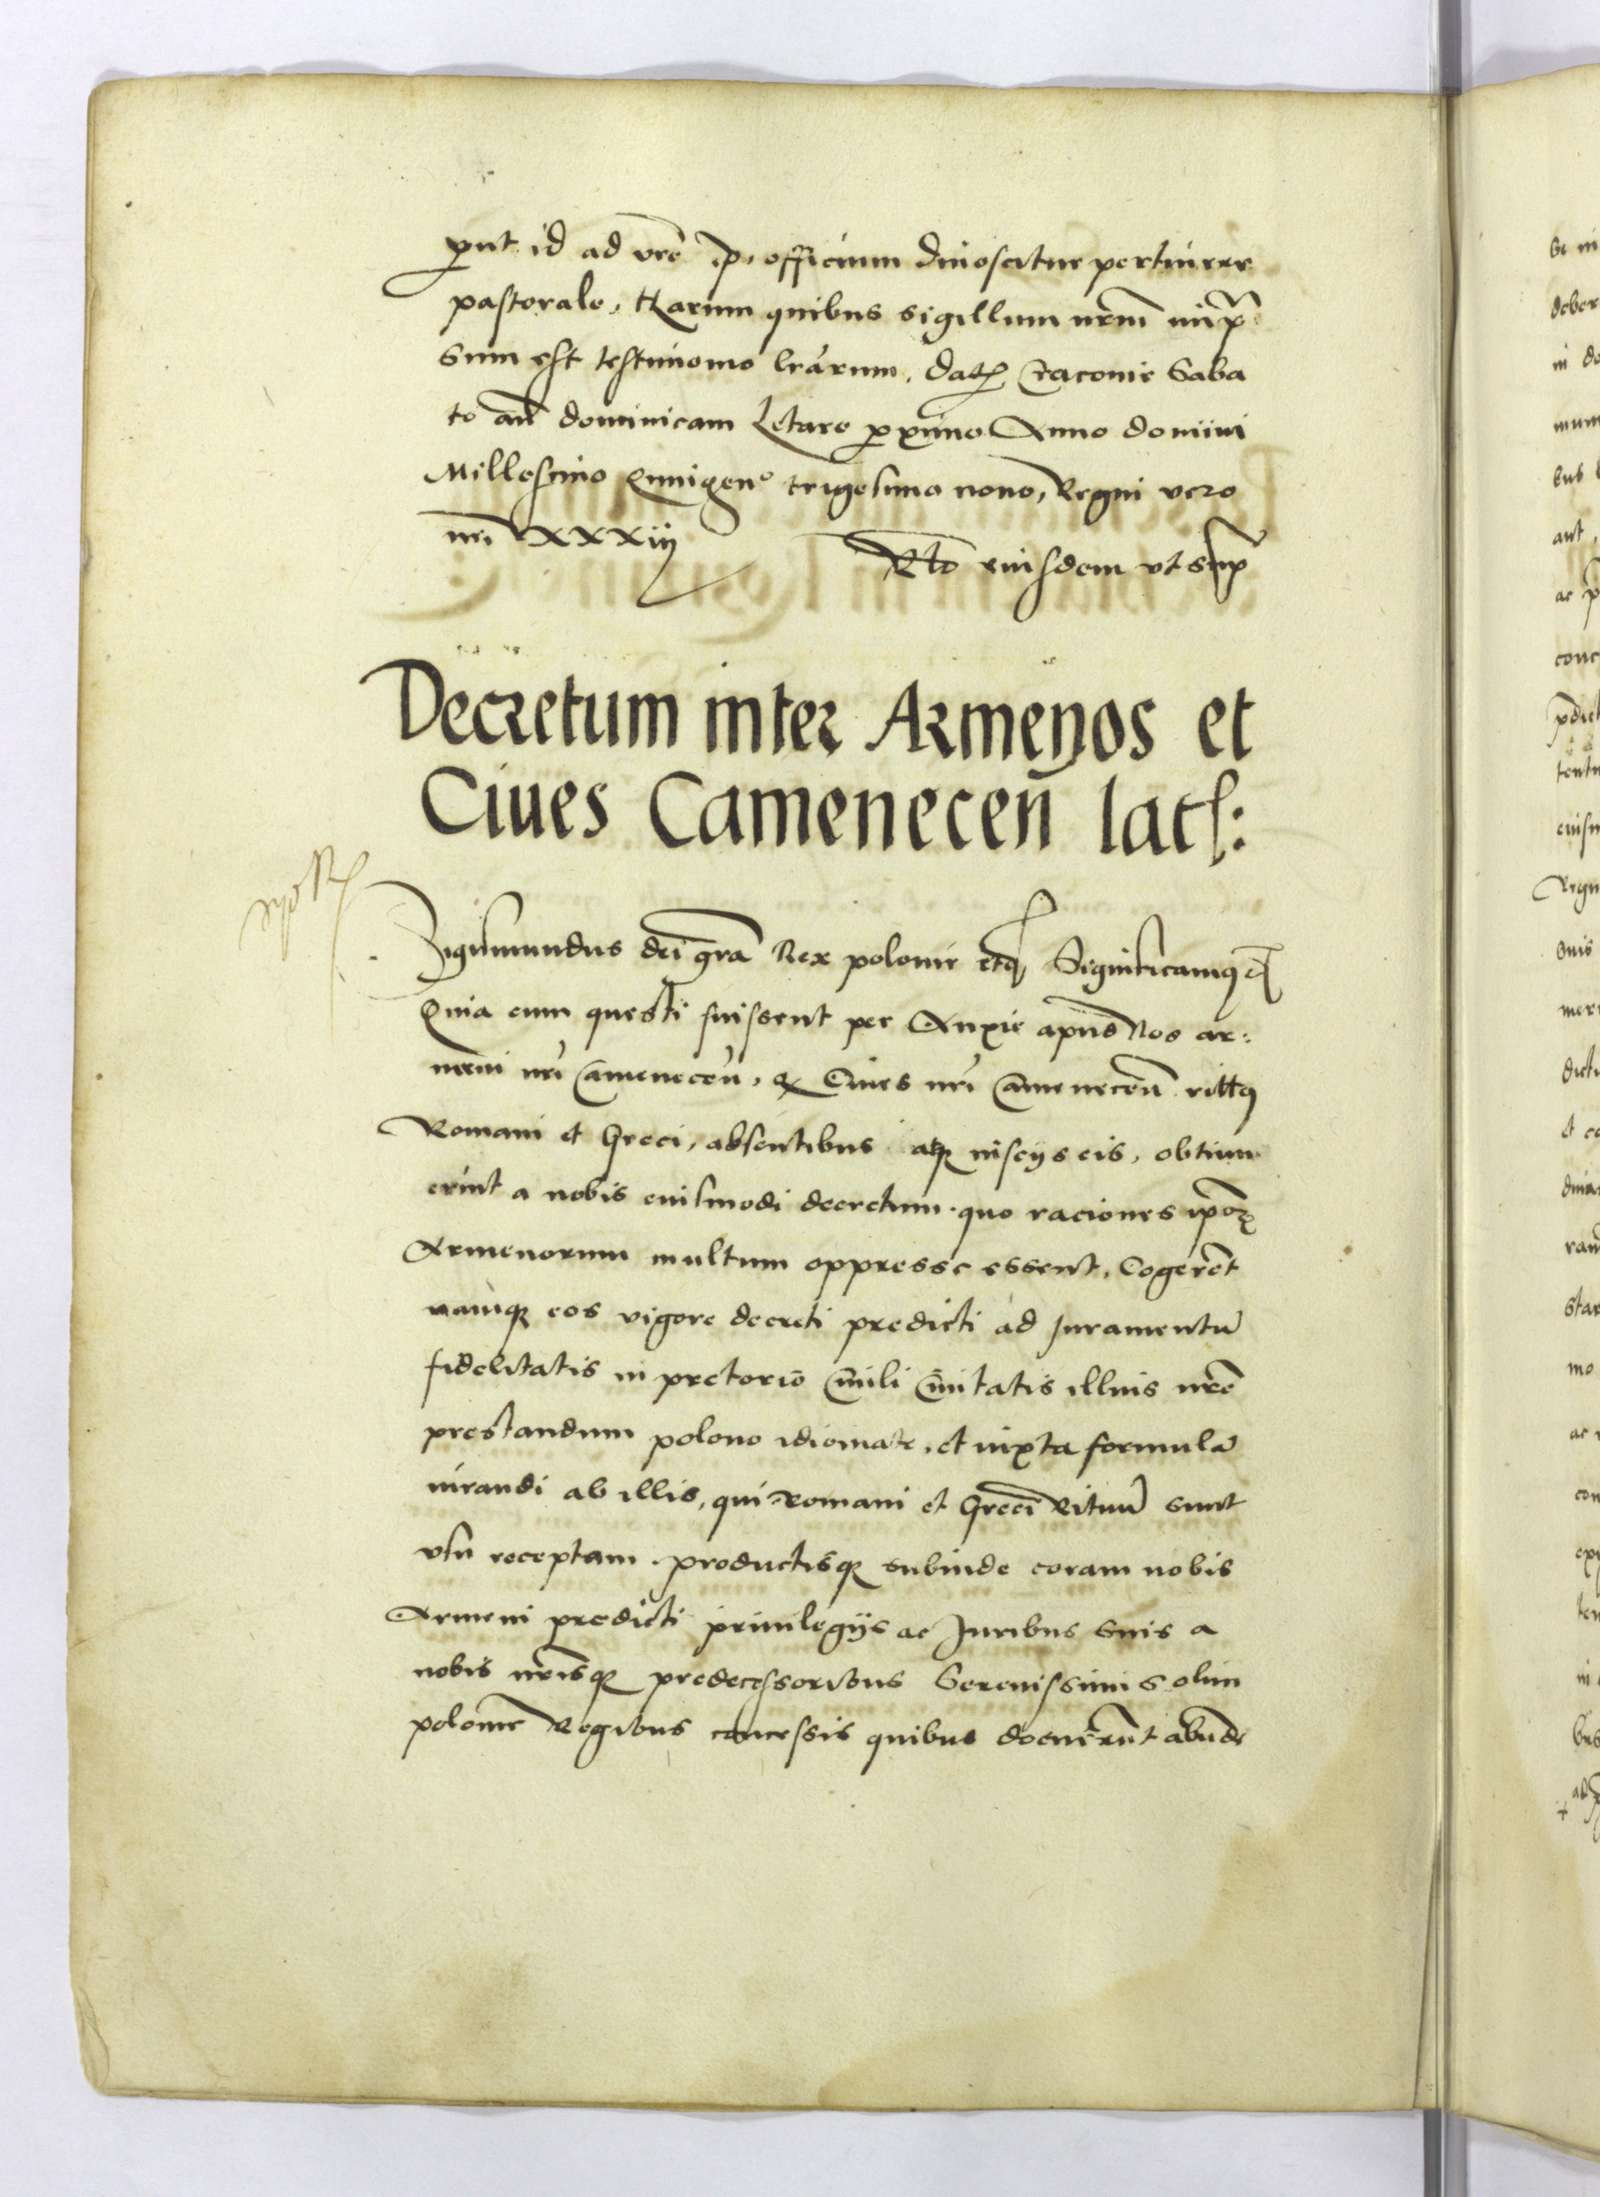 prut id ad vre p. officium dinoscitur pertinere
pastorale, Harum quibus sigillum nrm imp
sum est testimonio lrarum, dat Cracovie Saba
to an dominicam Letare proximo Anno domini
Millesimo Quingen° trigesimo nono, Regni vero
nri XXXiij Rlo eiusdem vt sup
Decretum inter Armenos et
Ciues Camenecen lats:
Sigismundus dei gra Rex polonie etc Significamus etc
Quia cum questi fuissent per Anxie apud Nos ar:
meni nri Camenecen, q Ciues nri Camenecen rittus
Romani et Greci, absentibus atq insciis eis, obtinu
erint a nobis eiusmodi decretum. quo raciones ipor
Armenorum multum oppresse essent, Cogerent
namq eos vigore decreti predicti ad Juramentu
fidelitatis in pretorio Ciuili Ciuitatis illius nre
prestandum polono idiomate, et iuxta formula
iurandi ab illis, qui Romani et Greci Rituu sunt
vsu receptam. productisq subinde coram nobis
Armeni predicti priuilegiis ac Juribus suis a
nobis nrisq predecessoribus Serenissimis olim
polonie Regibus concessis quibus docuerunt abunde